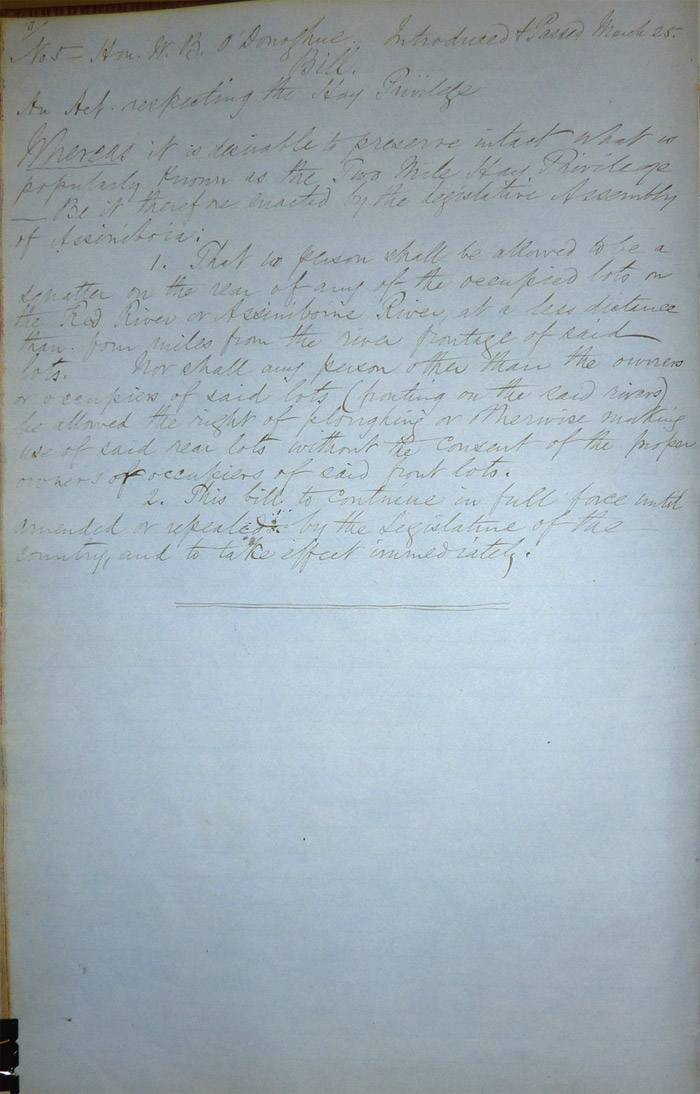 No 5 — Hon. W. B. O'Donoghue. Introduced & Passed March 25.
Bill.
An Act respecting the Hay Privilege
Whereas it is desirable to preserve intact what is
popularly known as the Two Mile Hay Privilege
— Be it therefore enacted by the legislative Assembly
of Assiniboia:
1. That no person shall be allowed to be a
squatter on the rear of any of the occupied lots on
the Red River or Assiniboine River, at a less distance
than four miles from the river frontage of said
lots. Nor shall any person other than the owners
or occupiers of said lots (fronting on the said rivers)
be allowed the right of ploughing or otherwise making
use of said rear lots without the consent of the proper
owners or occupiers of said front lots.
2. This bill to continue in full force until
amended or repealed by the Legislature of the
country, and to take effect immediately.